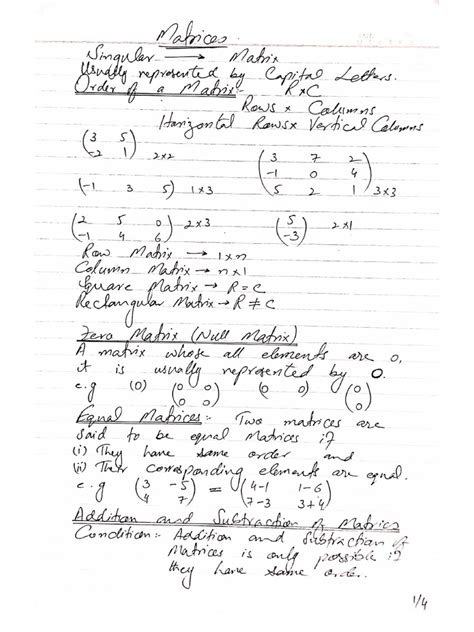 Matrices.
Singular ⟶ Matrix
Usually represented by Capital Letters.
Order of a Matrix:- R×C
Rows × Columns
Horizontal Rows × Vertical Columns
(3 5) (3 7 2)
(-2 1) 2×2 (-1 0 4)
(-1 3 5) 1×3 (5 2 1) 3×3
(2 5 0) 2×3 (5) 2×1
(-1 4 6) (-3)
Row Matrix → 1×n
Column Matrix → n×1
Square Matrix → R = C
Rectangular Matrix → R ≠ C
Zero Matrix (Null Matrix)
A matrix whose all elements are 0,
it is usually represented by O.
e.g (0) (0 0) (0 0) (0)
(0 0) (0)
Equal Matrices:- Two matrices are
said to be equal Matrices if
(i) They have same order and
(ii) Their corresponding elements are equal.
e.g (3 -5) = (4-1 1-6)
(4 7) (7-3 3+4)
Addition and Subtraction of Matrices
Condition:- Addition and subtraction of
Matrices is only possible if
they have same order.
1/4